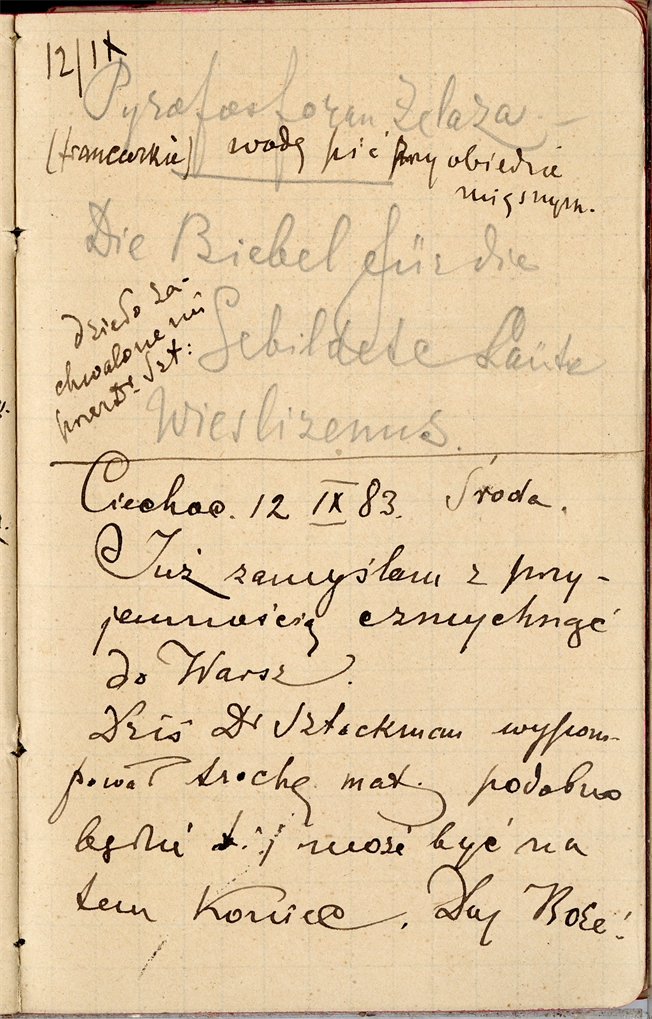 12/IX
Pyrofosforan Żelaza –
(francuskie) wodę pić przy obiedzie
mięsnym.
Die Biebel für die
Gebildete Läute
Wislizenus.
dzieło za-
chwalone mi
przez Dr Szt:
Ciechoc. 12 IX 83. Środa.
Już zamyślam z przy-
jemnością czmychnąć
do Warsz.
Dziś Dr Sztackman wypom-
pował trochę mat. podobno
będzie i może być na
tem Koniec. Daj Boże!